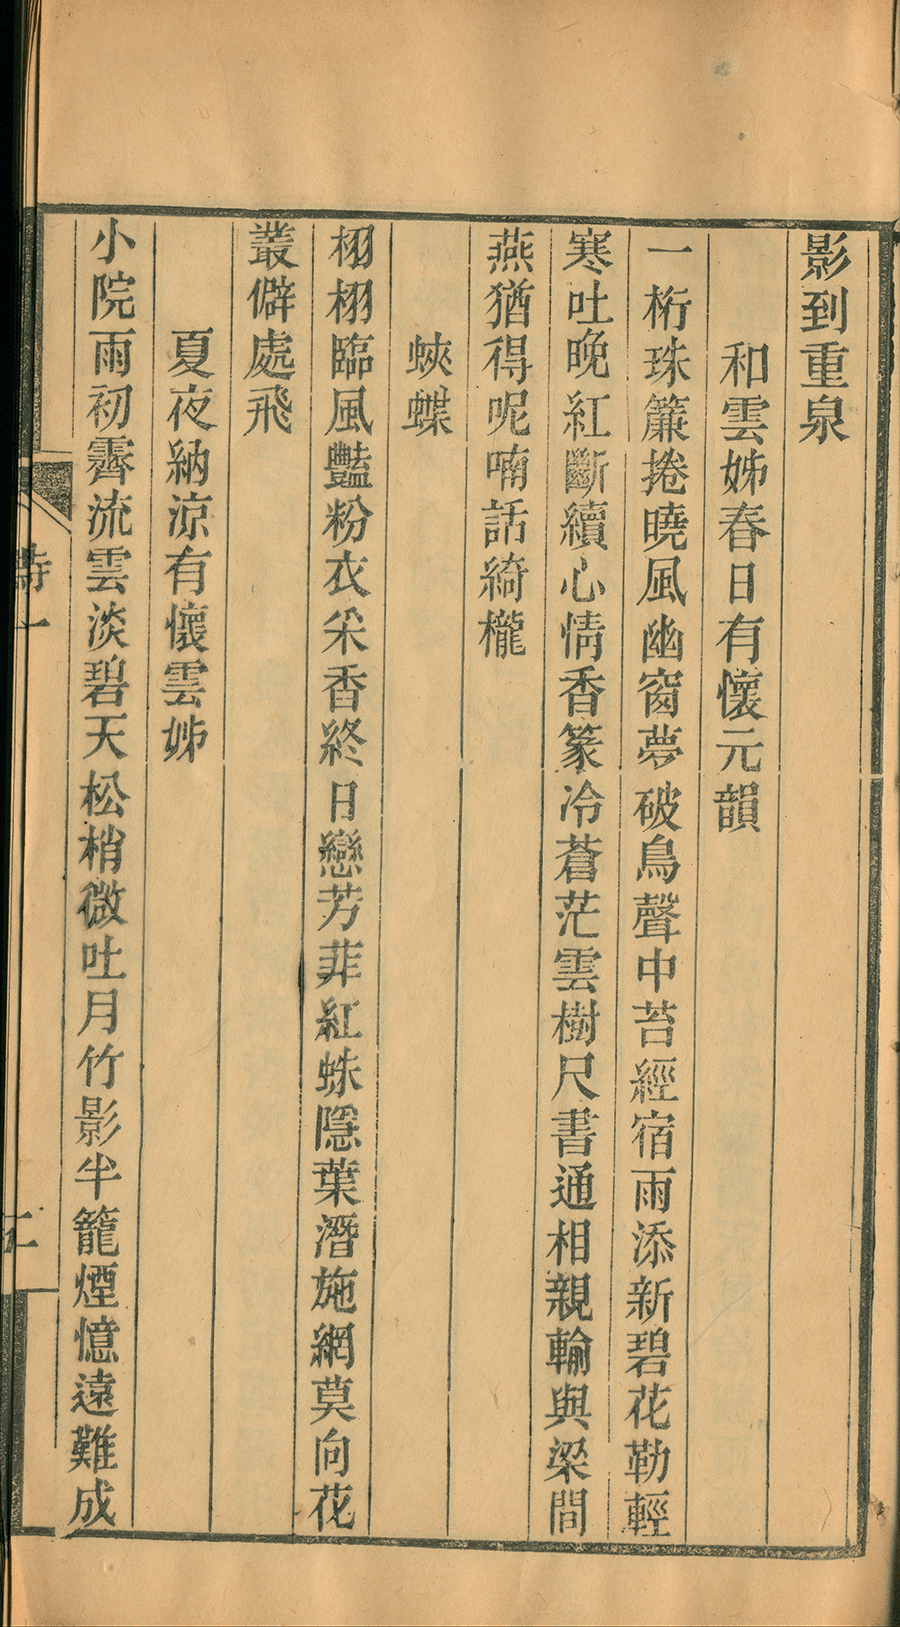 影到重泉
和雲姊春日有懷元韻
一桁珠簾捲曉風幽窗夢破鳥聲中苔經宿雨添新碧花勒輕
寒吐晚紅斷續心情香篆冷蒼茫雲樹尺書通相親輸與梁間
燕猶得呢喃話綺櫳
蛺蝶
栩栩臨風豔粉衣采香終日戀芳菲紅蛛隱葉潛施網莫向花
叢僻處飛
夏夜納涼有懷雲姊
小院雨初霽流雲淡碧天松梢微吐月竹影半籠煙憶遠難成
詩一
二